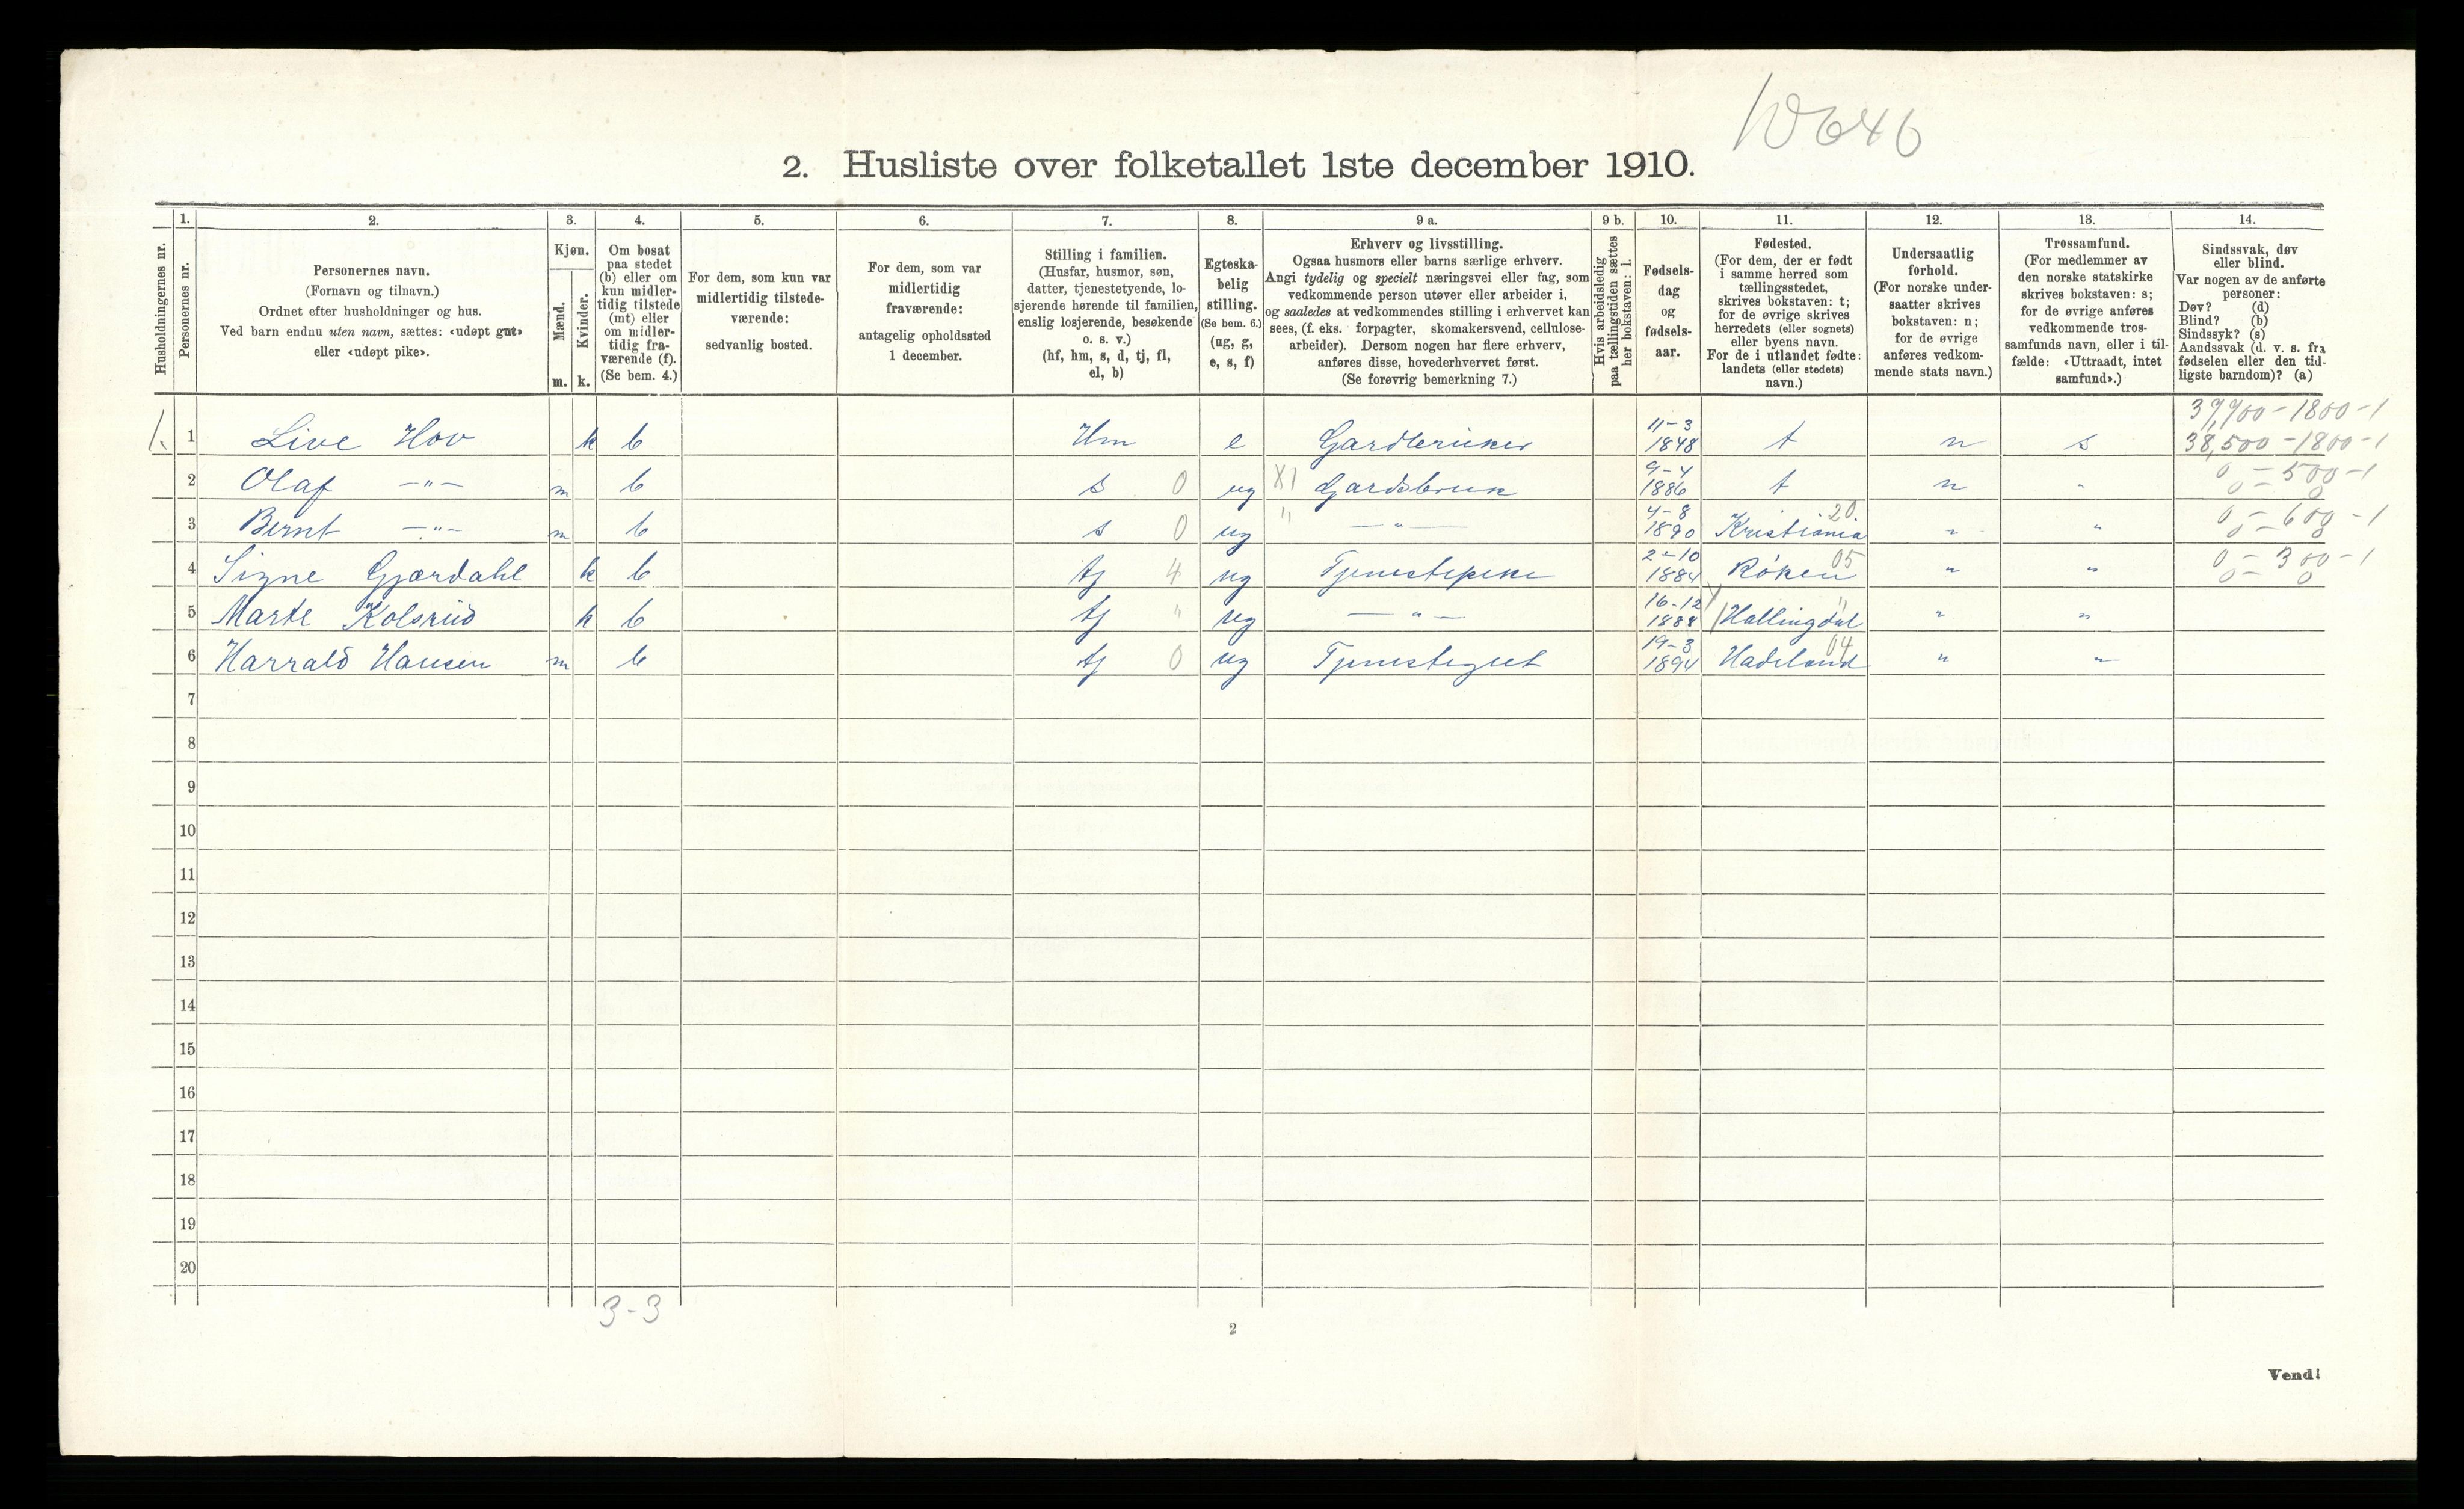 10646
2. Husliste over folketallet 1ste december 1910.
Husholdningernes nr.
1.
Personernes nr.
2.
Personernes navn.
(Fornavn og tilnavn.)
Ordnet efter husholdninger og hus.
Ved barn endnu uten navn, sættes: «udøpt gut»
eller «udøpt pike».
3.
Kjøn.
Mænd.
Kvinder.
m. k.
4.
Om bosat
paa stedet
(b) eller om
kun midler-
tidig tilstede
(mt) eller
om midler-
tidig fra-
værende (f).
(Se bem. 4.)
5.
For dem, som kun var
midlertidig tilstede-
værende:
sedvanlig bosted.
6.
For dem, som var
midlertidig
fraværende:
antagelig opholdssted
1 december.
7.
Stilling i familien.
(Husfar, husmor, søn,
datter, tjenestetyende, lo-
sjerende hørende til familien,
enslig losjerende, besøkende
o. s. v.)
(hf, hm, s, d, tj, fl,
el, b)
8.
Egteska-
belig
stilling.
(Se bem. 6.)
(ug, g,
e, s, f)
9 a.
Erhverv og livsstilling.
Ogsaa husmors eller barns særlige erhverv.
Angi tydelig og specielt næringsvei eller fag, som
vedkommende person utøver eller arbeider i,
og saaledes at vedkommendes stilling i erhvervet kan
sees, (f. eks. forpagter, skomakersvend, cellulose-
arbeider). Dersom nogen har flere erhverv,
anføres disse, hovederhvervet først.
(Se forøvrig bemerkning 7.)
9 b.
Hvis arbeidsledig
paa tællingstiden sættes
her bokstaven: l.
10.
Fødsels-
dag
og
fødsels-
aar.
11.
Fødested.
(For dem, der er født
i samme herred som
tællingsstedet,
skrives bokstaven: t;
for de øvrige skrives
herredets (eller sognets)
eller byens navn.
For de i utlandet fødte:
landets (eller stedets)
navn.)
12.
Undersaatlig
forhold.
(For norske under-
saatter skrives
bokstaven: n;
for de øvrige
anføres vedkom-
mende stats navn.)
13.
Trossamfund.
(For medlemmer av
den norske statskirke
skrives bokstaven: s;
for de øvrige anføres
vedkommende tros-
samfunds navn, eller i til-
fælde: «Uttraadt, intet
samfund».)
14.
Sindssvak, døv
eller blind.
Var nogen av de anførte
personer:
Døv? (d)
Blind? (b)
Sindssyk? (s)
Aandssvak (d. v. s. fra
fødselen eller den tid-
ligste barndom)? (a)
1. 1 Live Hov k b Hm e Gardbruker 11-3 1848 t n s 39,700-1800-1 38,500-1800-1
2 Olaf -"- m b s 0 ug X1 Gardsbruk 9-4 1886 t n " 0-500-1 0-0
3 Bernt -"- m b s 0 ug " -"- 4-8 1890 Kristiania 20 " " 0-600-1 0-0
4 Signe Gjærdahl k b tj 4 ug Tjenestepike 2-10 1884 Røken 05 " " 0-300-1 0-0
5 Marte Kolsrud k b tj " ug -"- 16-12 1888 Hallingdal " " "
6 Harrald Hansen m b tj 0 ug Tjenestegut 19-3 1894 Hadeland 04 " "
7
8
9
10
11
12
13
14
15
16
17
18
19
20
3-3
2
Vend!